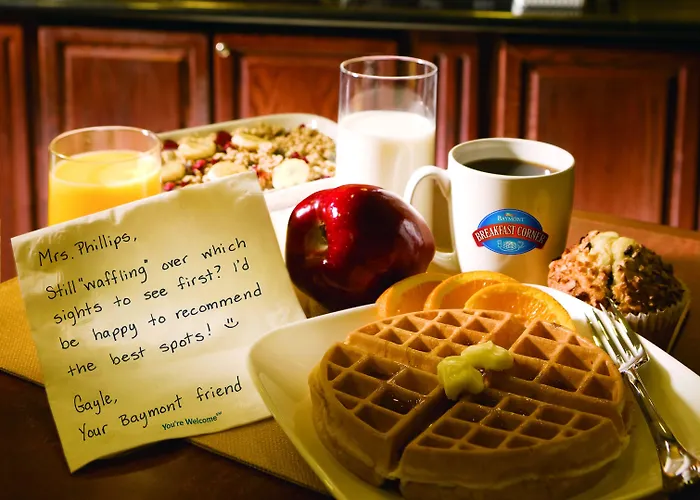 Mrs. Phillips,
Still "waffling" over which
sights to see first? I'd
be happy to recommend
the best spots!
Gayle,
Your Baymont friend
You're Welcome℠
BAYMONT
BREAKFAST CORNER